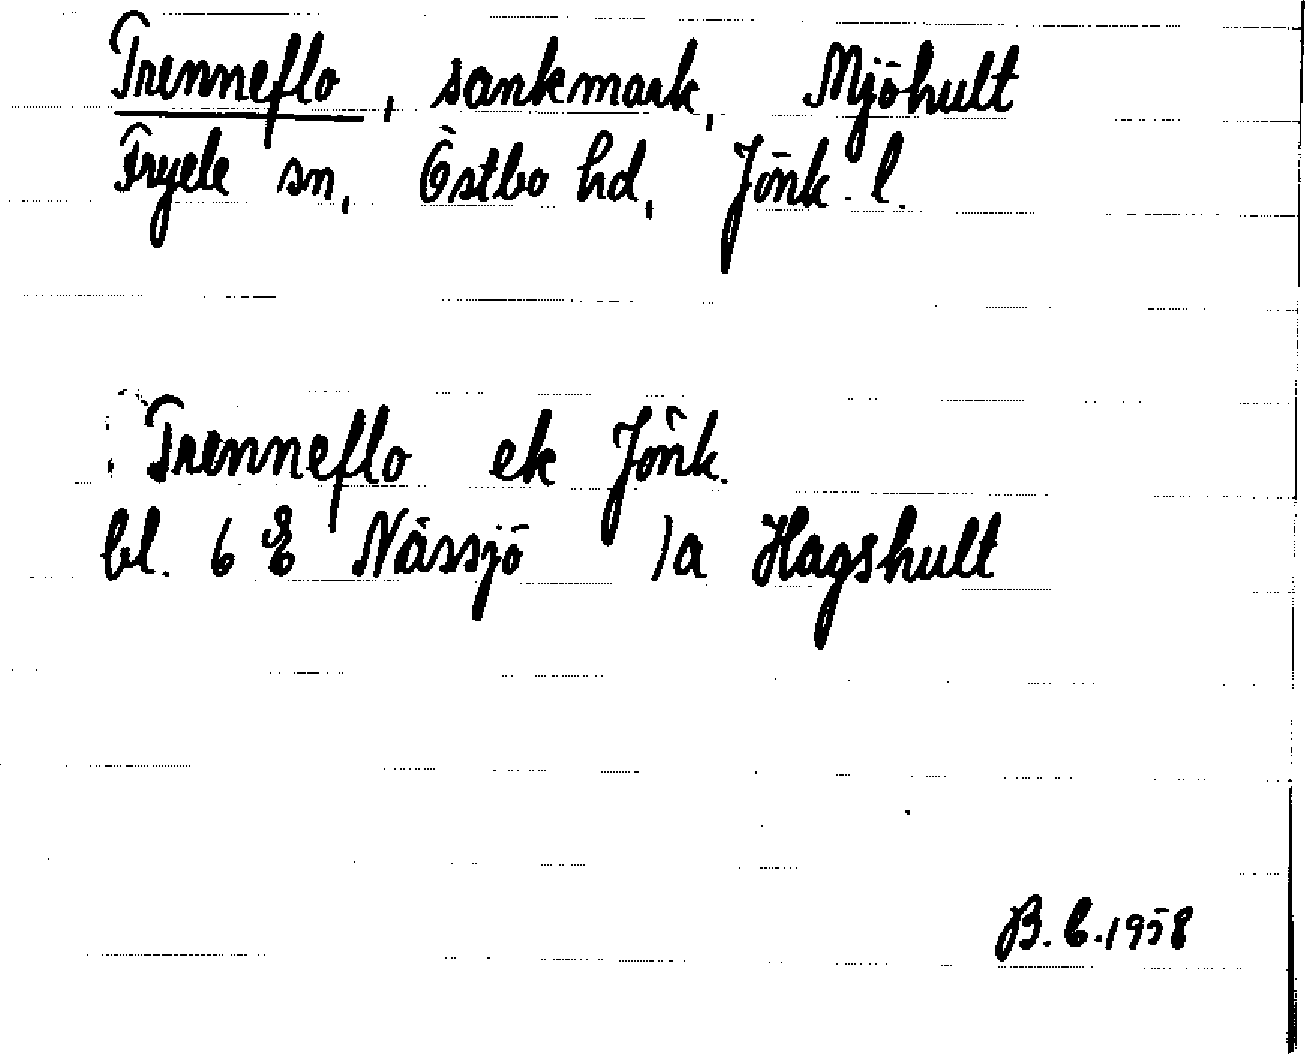 Trenneflo, sankmark, Mjöhult
Fryele sn, Östbo hd, Jönk. l.
Trenneflo ek Jönk.
bl. 6 E Nässjö )a Hagshult
B. E. 1958